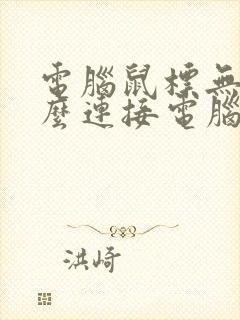 電腦鼠標無
麼連接電腦
洪崎